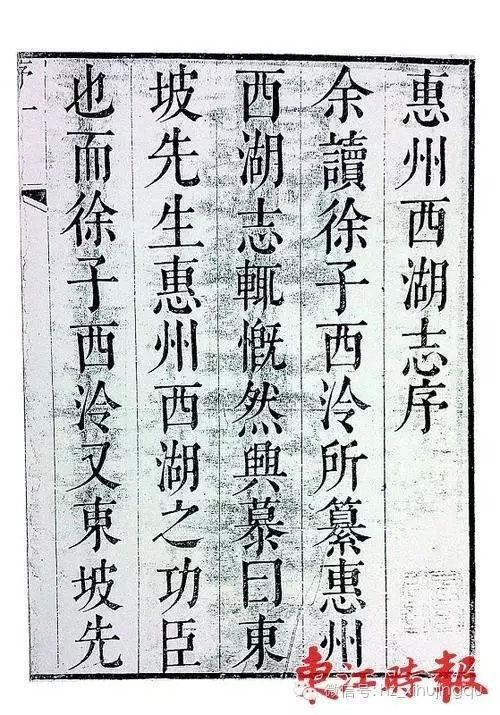 惠州西湖志序
余讀徐子西泠所纂惠州
西湖志輒慨然興慕曰東
坡先生惠州西湖之功臣
也而徐子西泠又東坡先
序一
東江時報
微信号: hz_xihujingqu